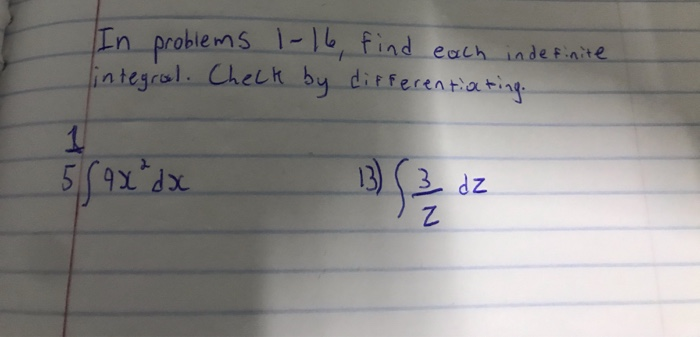 In problems 1-16, find each indefinite
integral. Check by differentiating.
1
5 ∫ 9x² dx 13) ∫ 3/z dz